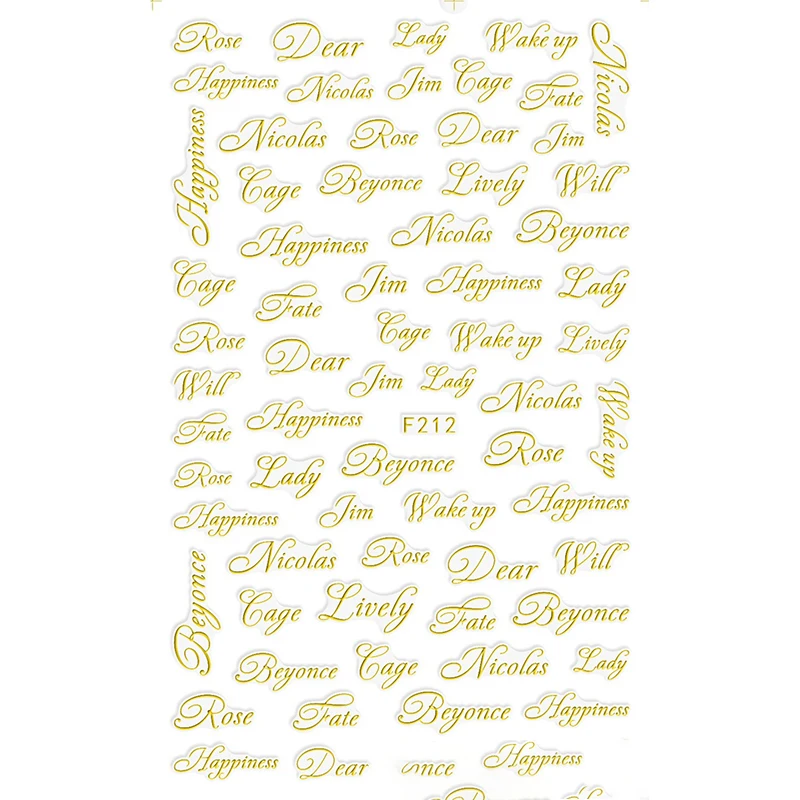 Rose Dear Lady Wake up Nicolas
Happiness Nicolas Jim Cage Fate
Happiness Nicolas Rose Dear Jim
Cage Beyonce Lively Will
Happiness Nicolas Beyonce
Cage Fate Jim Happiness Lady
Rose Dear Cage Wake up Lively
Will Jim Lady Nicolas Wake up
Fate Happiness F212 Rose
Rose Lady Beyonce
Happiness Jim Wake up Happiness
Beyonce Nicolas Rose Dear Will
Cage Lively Fate Beyonce
Beyonce Cage Nicolas Lady
Rose Fate Beyonce Happiness
Happiness Dear nce Happiness